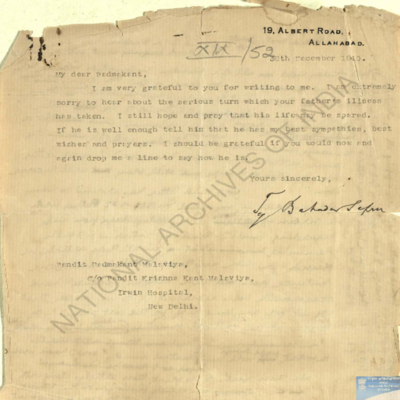 19, ALBERT ROAD,
ALLAHABAD.
XIX/52
December
My dear Padmakant,
I am very grateful to you for writing to me. I am extremely
sorry to hear about the serious turn which your father's illness
has taken. I still hope and pray that his life may be spared.
If he is well enough tell him that he has my best sympathies, best
wishes and prayers. I should be grateful if you would now and
again drop me a line to say how he is.
Yours sincerely,
Tej Bahadur Sapru
Pandit Padmakant Malaviya,
c/o Pandit Krishna Kant Malaviya,
Irwin Hospital,
New Delhi.
NATIONAL ARCHIVES OF INDIA